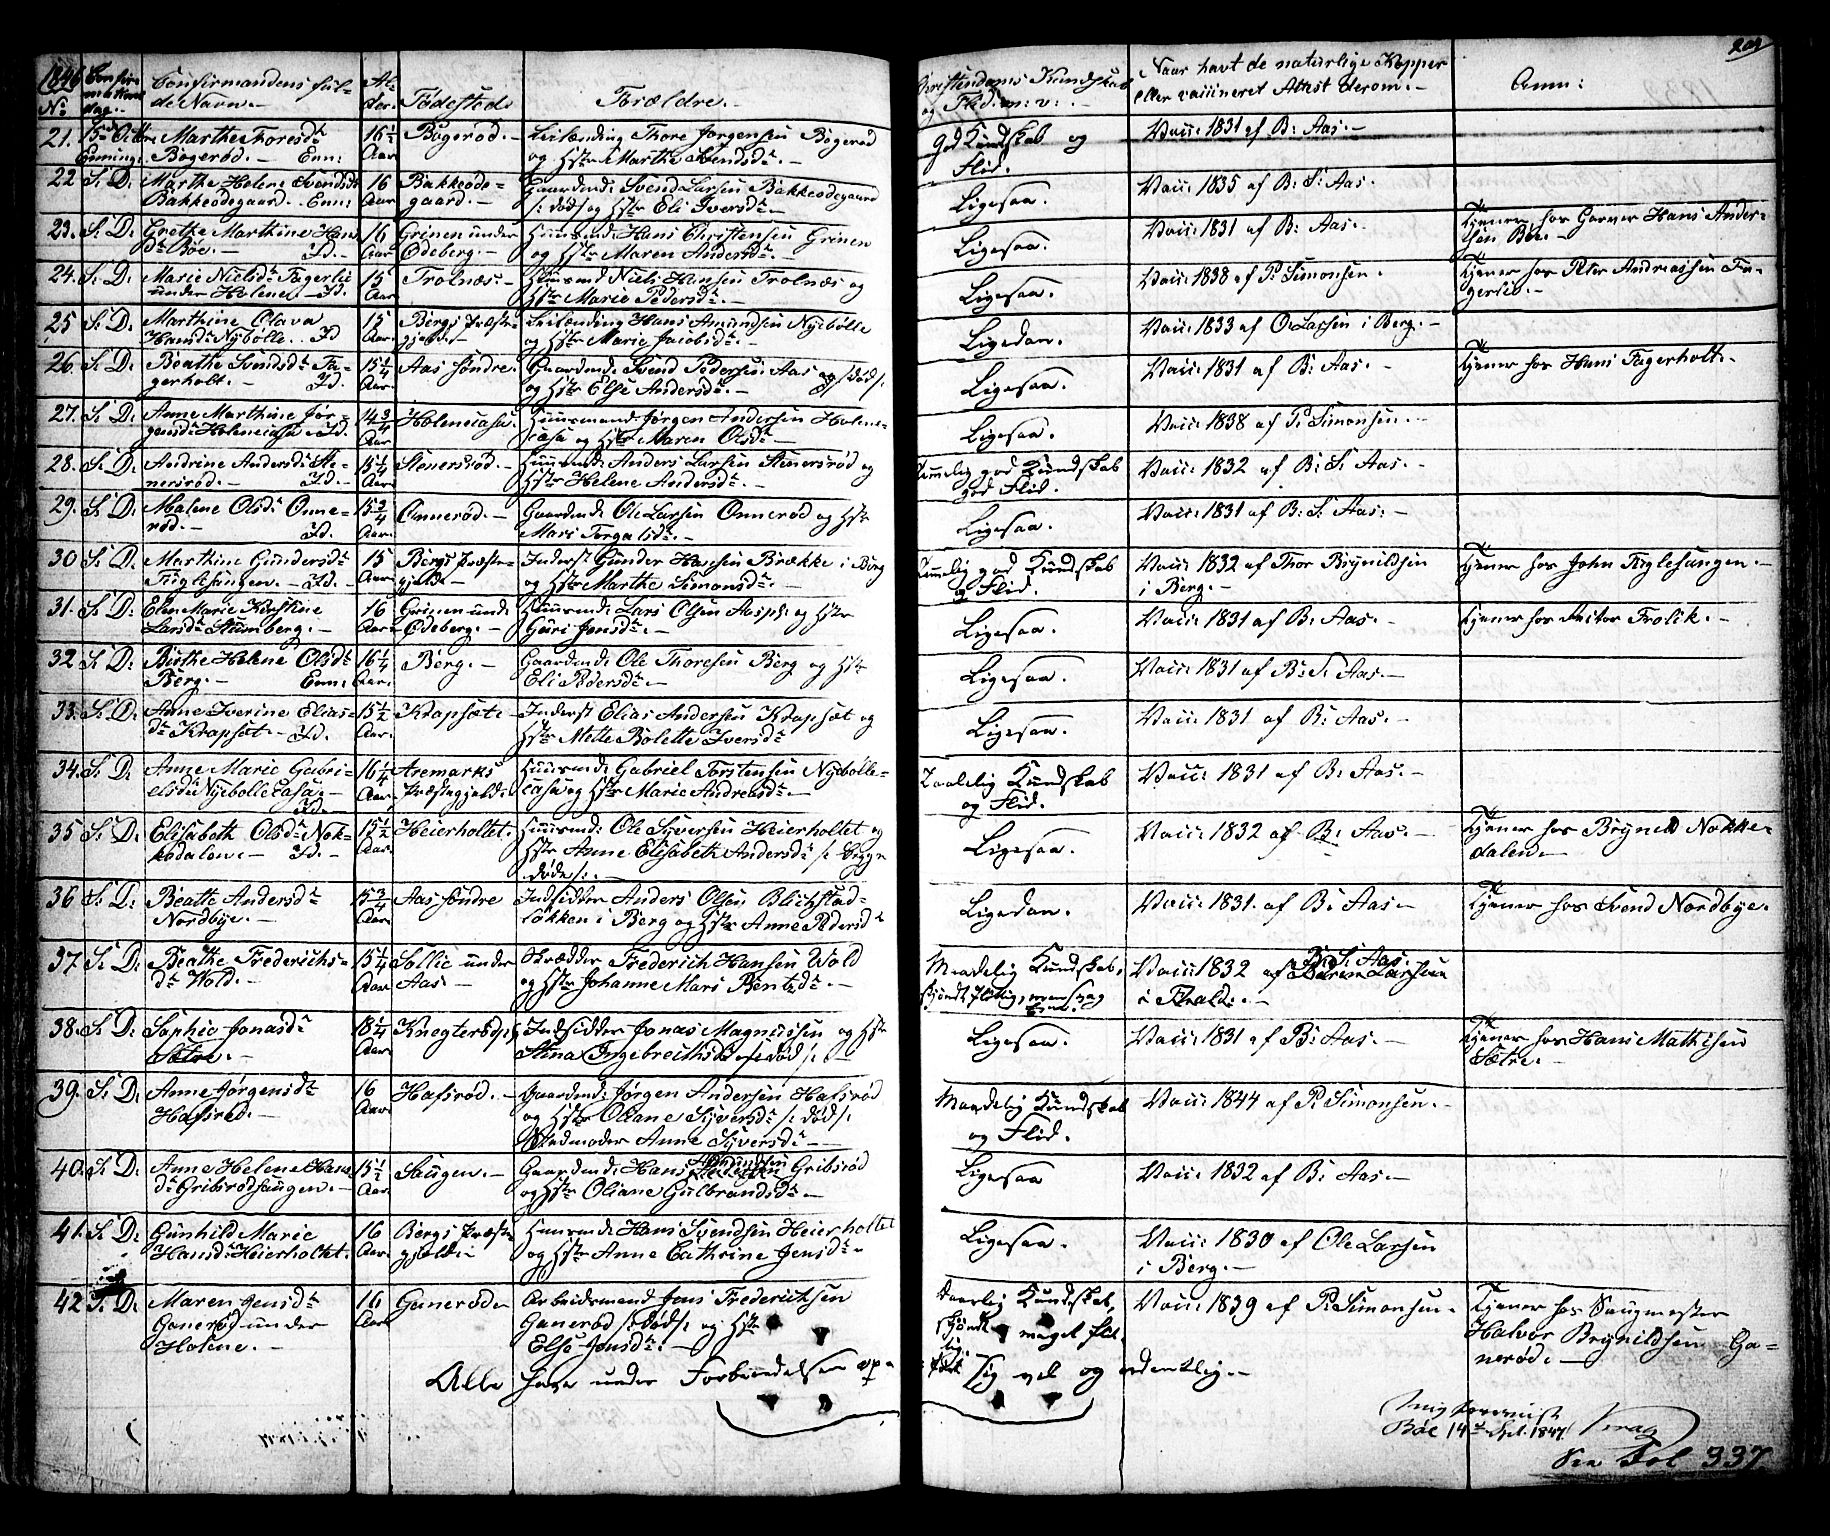 1846
No
Confirmations dag.
Confirmandens fulde Navn.
Alder.
Fødested
Forældre.
Christendoms Kundskab og Flid m: v:
Naar havt de naturlige Kopper eller vaccineret Attest derom.
Anm:
21.
Marthe Thoresdt
Bøgerød. Enn:
16½ Aar
Bøgerød.
Leilænding Thore Jørgensen Bøgerød
og Hstr Marthe Svendsdt.
God Kundskab og
Flid.
Vacc: 1831 af B: Aas.
22 S. D.
Marthe Helene Svendsdt
Bakkeødegaard. Enn:
16 Aar
Bakkeøde-
gaard.
Gaardmd: Svend Larsen Bakkeødegaard
/: død og Hstr Eli Iversdt
Ligesaa.
Vacc: 1835 af B: S. Aas.
23. S. D.
Grethe Marthine Hans
dt Bøe. Id.
16 Aar
Grinen under
Ødeberg.
Huusmd: Hans Christensen Grinen
og Hstr Maren Andersdt.
Ligesaa.
Vacc: 1831 af B: Aas.
Tjener hos Garver Hans Ander-
sen Bøe.
24. S. D.
Marie Nielsdt Fagerlie
under Holene Id.
15 Aar
Trolnæs.
Huusmand Niels Hansen Trolnæs og
Hstr Marie Pedersdt.
Ligesaa.
Vacc: 1838 af P. Simonsen.
Tjener hos Peter Andreassen Fa-
gerlie.
25 S. D.
Marthine Olava
Hansdt Nybølle. Id
15 Aar
Bergs Præste-
gjeld.
Leilænding Hans Amundsen Nyebølle
og Hstr Marie Jacobsdt.
Ligedan.
Vacc: 1833 af O. Larsen i Berg.
26. S. D.
Beathe Svendsdt Fa-
gerholt. Id.
15¼ Aar
Aas søndre.
Gaardmd: Svend Pedersen Aas /: død /:
og Hstr Else Andersdt.
Ligesaa.
Vacc: 1831 af B: Aas.
Tjener hos Hans Fagerholt.
27. S. D.
Anne Marthine Jør-
gensdt Holenecasa Id.
14¾ Aar
Holenecasa.
Huusmand Jørgen Andersen Holene-
casa og Hstr Maren Olsdt
Ligesaa.
Vacc: 1838 af P. Simonsen.
28. S. D.
Andrine Andersdt Ste-
nersrød. Id.
15¼ Aar
Stenersrød.
Huusmd: Anders Larsen Stenersrød og
Hstr Helene Andersdt.
Temmelig god Kundskab
god Flid.
Vacc: 1832 af B: S. Aas.
29. S. D.
Malene Olsdt Onne-
rød. Id.
15¾ Aar
Onnerød.
Gaardmd: Ole Larsen Onnerød og Hstr
Mari Torgalsdt.
Ligesaa.
Vacc: 1831 af B: S. Aas.
30 S. D.
Marthine Gundersdt
Fuglesungen. Id.
15 Aar
Bergs Præste-
gjeld.
Inderst Gunder Hansen Brække i Berg
og Hstr Marthe Simonsdt.
Temmelig god Kundskab
og Flid.
Vacc: 1832 af Thor Brynildsen
i Berg.
Tjener hos John Fuglesungen.
31. S. D.
Elen Marie Kirstine
Larsdt Stumberg.
16 Aar
Grinen und:
Ødeberg.
Huusmd: Lars Olsen Aasp: og Hstr
Guri Jensdt.
Ligesaa.
Vacc: 1831 af B: Aas.
Tjener hos Pastor Frolik.
32 S. D.
Birthe Helene Olsdt
Berg. Enn:
16¼ Aar
Berg.
Gaardmd: Ole Thoresen Berg og Hstr
Eli Pedersdt.
Ligesaa.
Vacc: 1831 af B: S. Aas.
33. S. D.
Anne Iverine Elias-
dt Krapsæt. Id.
15½ Aar.
Krapsæt.
Inderst Elias Andersen Krapsæt og
Hstr Mette Bolette Iversdt
Ligesaa.
Vacc: 1831 af B: Aas.
34. S. D.
Anne Marie Gabri-
elsdt Nyebøllecasa. Id.
16¼ Aar
Aremarks
Præstegjeld.
Huusmd: Gabriel Torstensen Nyebølle-
casa og Hstr Marie Andreasdt.
Taalelig Kundskab
og Flid.
Vacc: 1831 af B: Aas.
35 S. D.
Elisabeth Olsdt Nok-
kedalen. Id.
15½ Aar.
Heierholtet.
Huusmd: Ole Syversen Heierholtet og
Hstr Anne Elisabeth Andersdt /: begge
døde /:
Ligesaa.
Vacc: 1832 af B: Aas.
Tjener hos Brynild Nokke-
dalen.
36 S. D.
Beatte Andersdt
Nordbye.
15¾ Aar
Aas søndre
Indsidder Anders Olsen, Blixstad-
løkken i Berg og Hstr Anne Pedersdt
Ligedan.
Vacc: 1831. af B: Aas
Tjener hos Svend Nordbye.
37. S. D.
Beathe Frederichs-
dt Wold.
15¼ Aar
Sollie under
Aas.
Skrædder Frederich Hansen Wold
og Hstr Johanne Mari Bentsdt.
Maadelig Kundskab,
skjøndt flittig, men svag
Vacc: 1832 af B: S. Aas.
i Fhald.
38. S. D.
Sophie Jonasdt
Sætre.
18¼ Aar
Indsidder Jonas Magnussen og Hstr
Stina Ingebrethsdt /: død /:
Ligesaa.
Vacc: 1831 af B: Aas.
Tjener hos Hans Mathisen
Sætre.
39. S. D.
Anne Jørgensdt
Hafsrød.
16 Aar
Hafsrød.
Gaardmd: Jørgen Andersen Hafsrød
og Hstr Oleane Syversdt /: død /:
Stedmoder Anne Syversdt
Maadelig Kundskab
og Flid.
Vacc: 1844 af P. Simonsen.
40. S. D.
Anne Helene Hans
dt Gribsrødsaugen.
15½ Aar.
Saugen.
Gaardmd: Hans Gribsrød
og Hstr Oliane Gulbrandsdt.
Ligesaa
Vacc: 1832 af B: Aas.
41. S. D.
Gunhild Marie
Hansdt Heierholtet.
16 Aar.
Bergs Præste
gjeld.
Huusmd: Hans Svendsen Heierholtet
og Hstr Anne Cathrine Jensdt.
Ligesaa.
Vacc: 1830 af Ole Larsen
i Berg.
42 S. D.
Maren Jensdt
Ganerød under
Holene.
16 Aar
Ganerød
Arbeidsmand Jens Frederichsen
Ganerød /: død /: og Hstr
Else Jensdt.
Daarlig Kundskab,
skjøndt meget flit-
tig.
Vacc: 1839 af P. Simonsen.
Tjener hos Saugmester
Halvor Brynildsen Ga-
nerød.
Alle have under Forberedelsen op-
ført sig vel og ordentlig.
Bøe 14de Sept. 1847. Krag
See Fol 337